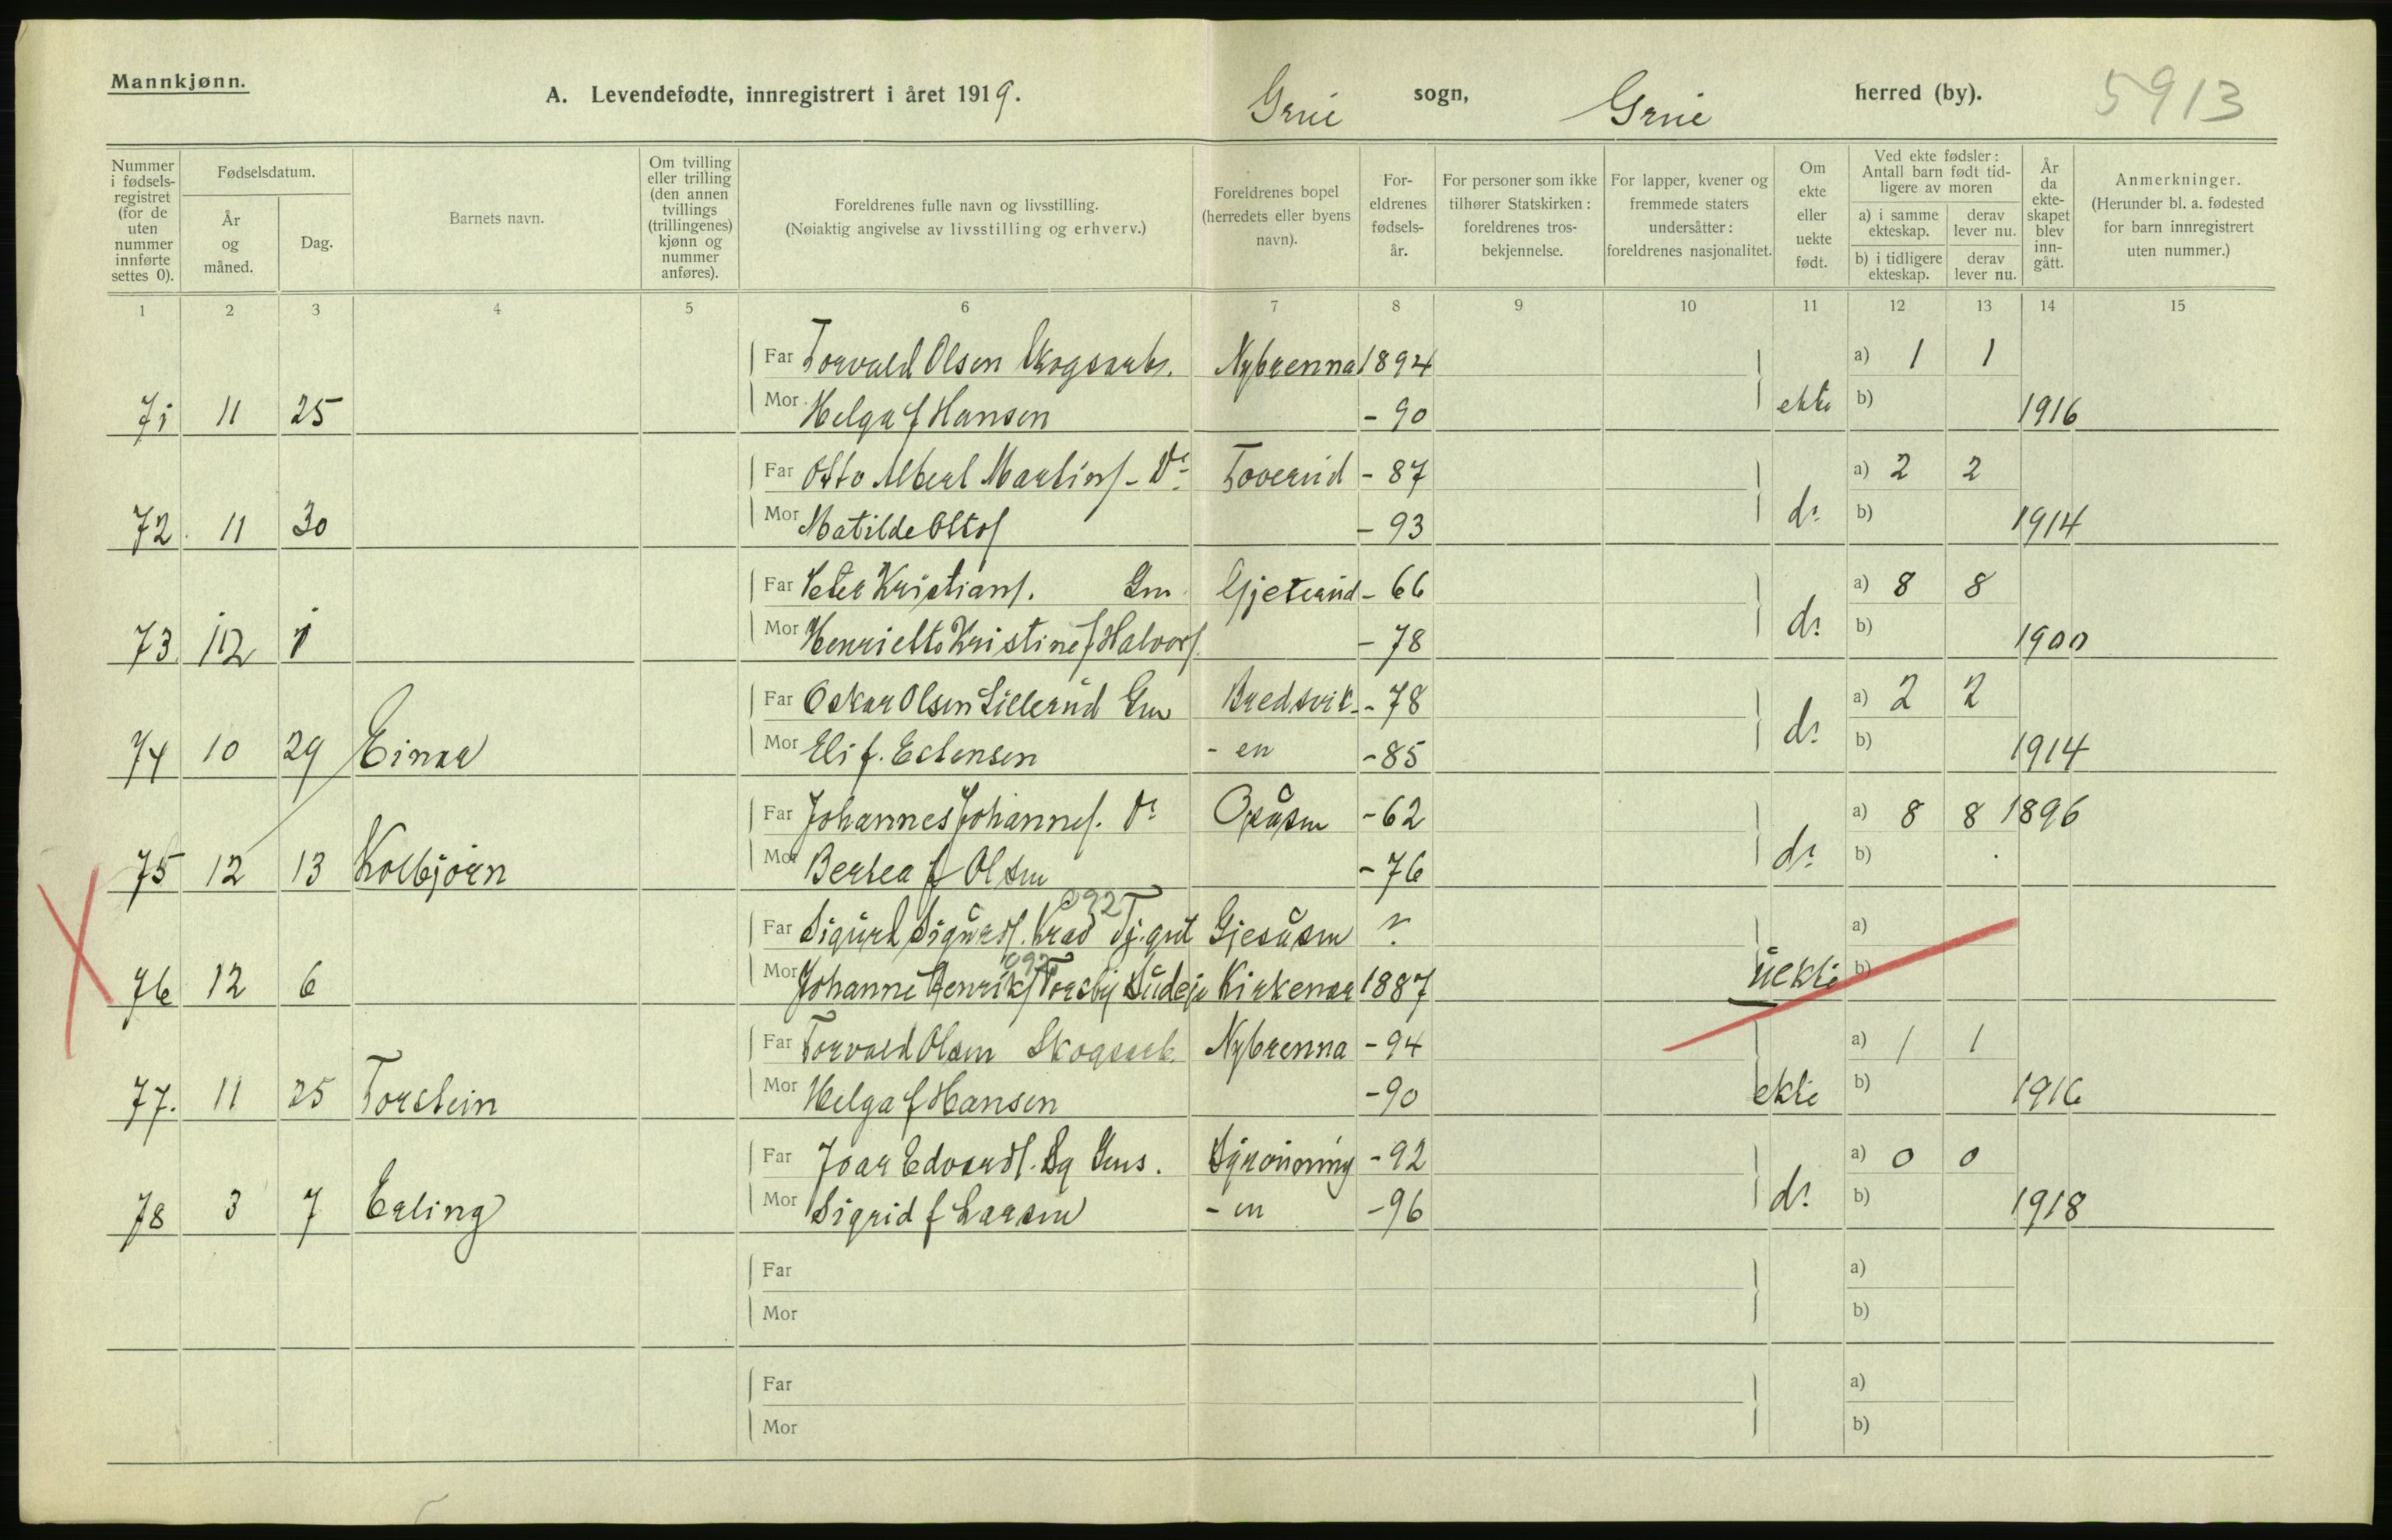 Mannkjønn.
A. Levendefødte, innregistrert i året 1919. Grue sogn, Grue herred (by). 5913
Nummer i fødselsregistret (for de uten nummer innførte settes 0).
Fødselsdatum.
År og måned.
Dag.
Barnets navn.
Om tvilling eller trilling (den annen tvillings (trillingenes) kjønn og nummer anføres).
Foreldrenes fulle navn og livsstilling.
(Nøiaktig angivelse av livsstilling og erhverv.)
Foreldrenes bopel (herredets eller byens navn).
For-eldrenes fødsels-år.
For personer som ikke tilhører Statskirken: foreldrenes tros-bekjennelse.
For lapper, kvener og fremmede staters undersåtter: foreldrenes nasjonalitet.
Om ekte eller uekte født.
Ved ekte fødsler: Antall barn født tid-ligere av moren
a) i samme ekteskap.
derav lever nu.
b) i tidligere ekteskap.
derav lever nu.
År da ekte-skapet blev inn-gått.
Anmerkninger.
(Herunder bl. a. fødested for barn innregistrert uten nummer.)
1 2 3 4 5 6 7 8 9 10 11 12 13 14 15
Far Torvald Olsen Skogsarb. Nybrenna 1894 a) 1 1
71 11 25 Mor Helga f Hansen - 90 ekte b) 1916
Far Otto Albert Martins. - Do Toverud - 87 a) 2 2
72. 11 30 Mor Matilde Ottos. - 93 do b) 1914
Far Peter Kristians. Gm Gjeterud - 66 a) 8 8
73. 12 1 Mor Henriette Kristine f Halvors. - 78 do b) 1900
Far Oskar Olsen Lillerud Gm Bredsvik - 78 a) 2 2
74 10 29 Einar Mor Eli f. Estensen - en - 85 do b) 1914
Far Johannes Johannes. Do Opåsen - 62 a) 8 8 1896
75 12 13 Kolbjørn Mor Bertea f Olsen - 76 do b)
092
Far Sigurd Sigurds. Tj.gut Gjesåsen ? a)
092
76 12 6 Mor Johanne Henriks. Torsby Kirkener 1887 uekte b)
Far Torvald Olsen Skogsarb. Nybrenna - 94 a) 1 1
77. 11 25 Torstein Mor Helga f Hansen - 90 ekte b) 1916
Far Joar Edvards. Gms. - 92 a) 0 0
78 3 7 Erling Mor Sigrid f Larsen - en - 96 do b) 1918
Far a)
Mor b)
Far a)
Mor b)